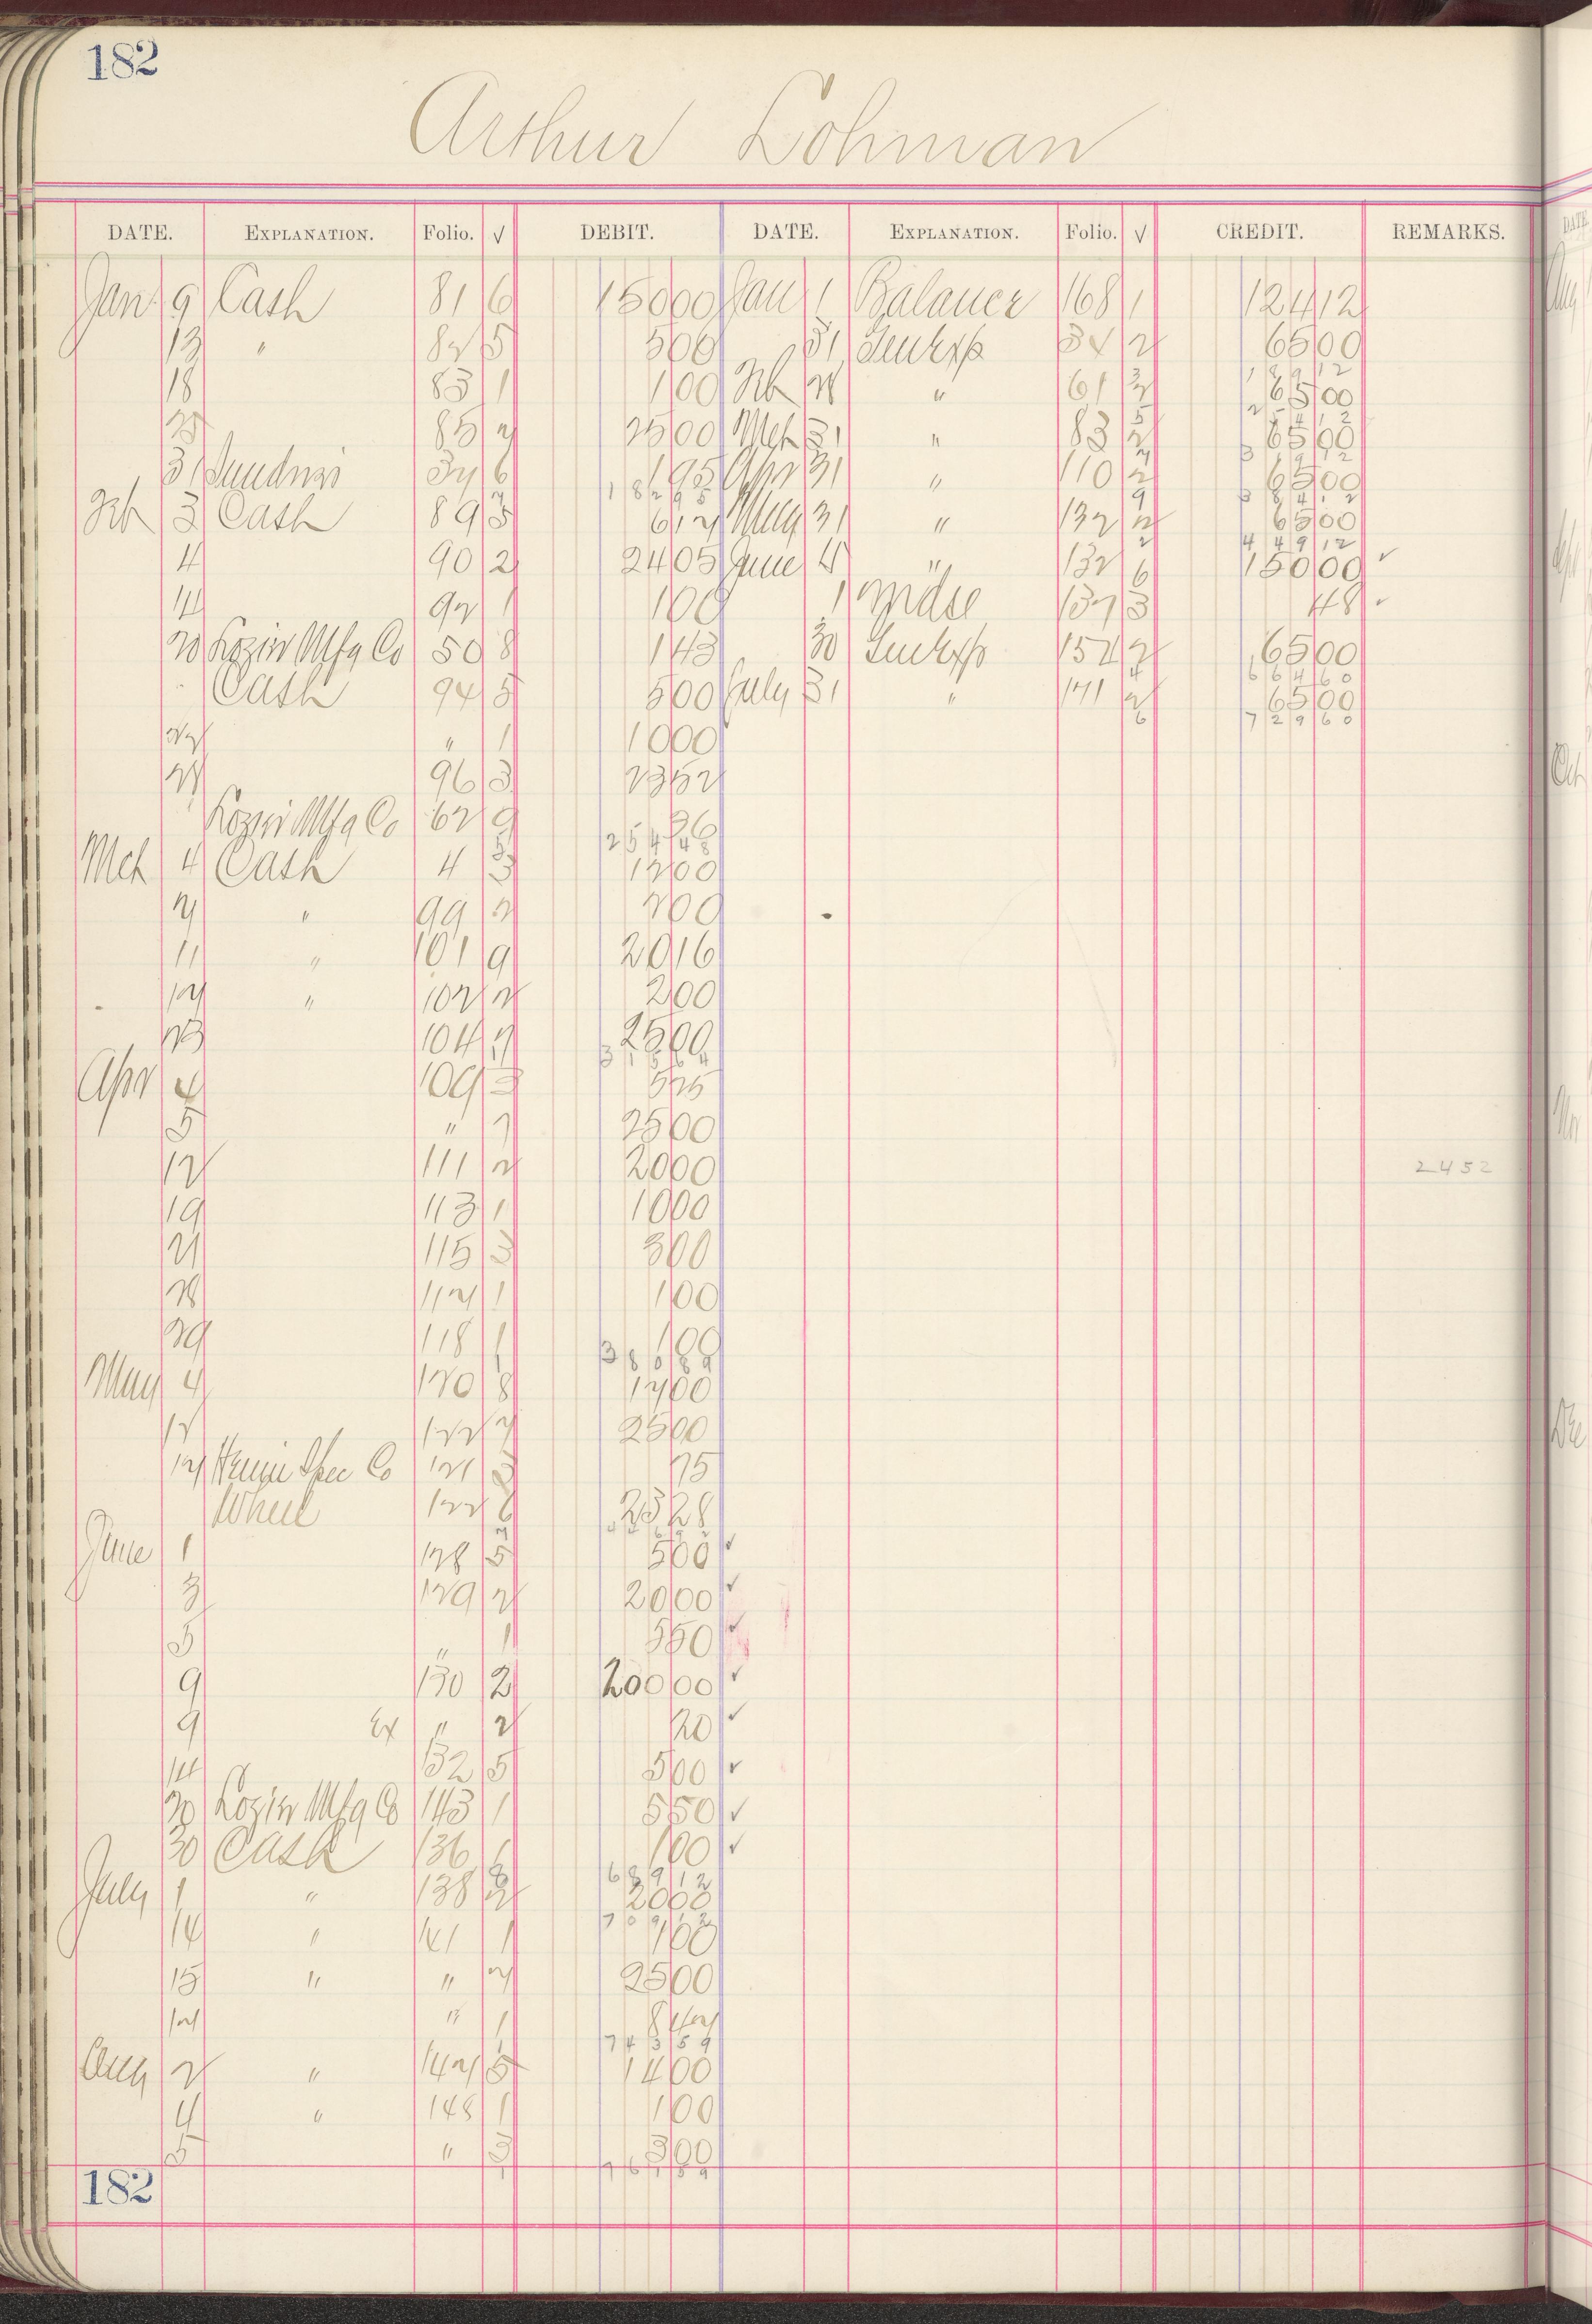 182
Arthur Lohman
DATE. EXPLANATION. Folio. √ DEBIT. DATE. EXPLANATION. Folio. √ CREDIT. REMARKS.
Jan 9 Cash 81 6 150 00 Jan 1 Balance 168 1 124 12
13 " 82 5 5 00 31 Gen Exp 34 2 65 00
18 83 1 1 00 Feb 28 " 61 2 65 00
25 85 7 25 00 Mch 31 " 83 2 65 00
31 Sundries 34 6 1 95 Apr 31 " 110 2 65 00
1 8 2 9 5
Feb 3 Cash 89 3 6 17 May 31 " 132 2 65 00
4 90 2 24 05 June 4 " 132 6 150 00 ✓
14 92 1 1 00 1 Mdse 137 3 48 ✓
20 Lozier Mfg Co 50 8 1 43 30 Gen Exp 157 2 65 00
6 6 4 6 0
Cash 94 5 5 00 July 31 " 171 2 65 00
7 2 9 6 0
27 " 1 10 00
28 96 3 23 52
Lozier Mfg Co 62 9 36
2 5 4 4 8
Mch 4 Cash 4 3 12 00
7 " 99 2 2 00
11 " 101 9 20 16
17 " 102 2 2 00
23 104 7 25 00
3 1 5 6 4
Apr 4 109 3 5 25
5 " 7 25 00
12 111 2 20 00
19 113 1 10 00
21 115 3 3 00
28 117 1 1 00
29 118 1 1 00
3 8 0 8 9
May 4 120 8 17 00
12 122 7 25 00
17 Co 121 3 75
Wheel 122 6 23 28
June 1 128 5 5 00 ✓
3 129 2 20 00 ✓
5 " 1 5 50 ✓
9 130 2 200 00 ✓
9 Ex " 2 20 ✓
14 132 5 5 00 ✓
20 Lozier Mfg Co 143 1 5 50 ✓
30 Cash 136 1 1 00 ✓
6 8 9 1 2
July 1 " 138 2 20 00
7 0 9 1 2
14 " 141 1 1 00
15 " " 7 25 00
17 " 1 8 47
7 4 3 5 9
Aug 2 " 147 5 14 00
4 " 148 1 1 00
5 " 3 3 00
7 6 1 5 9
2452
182